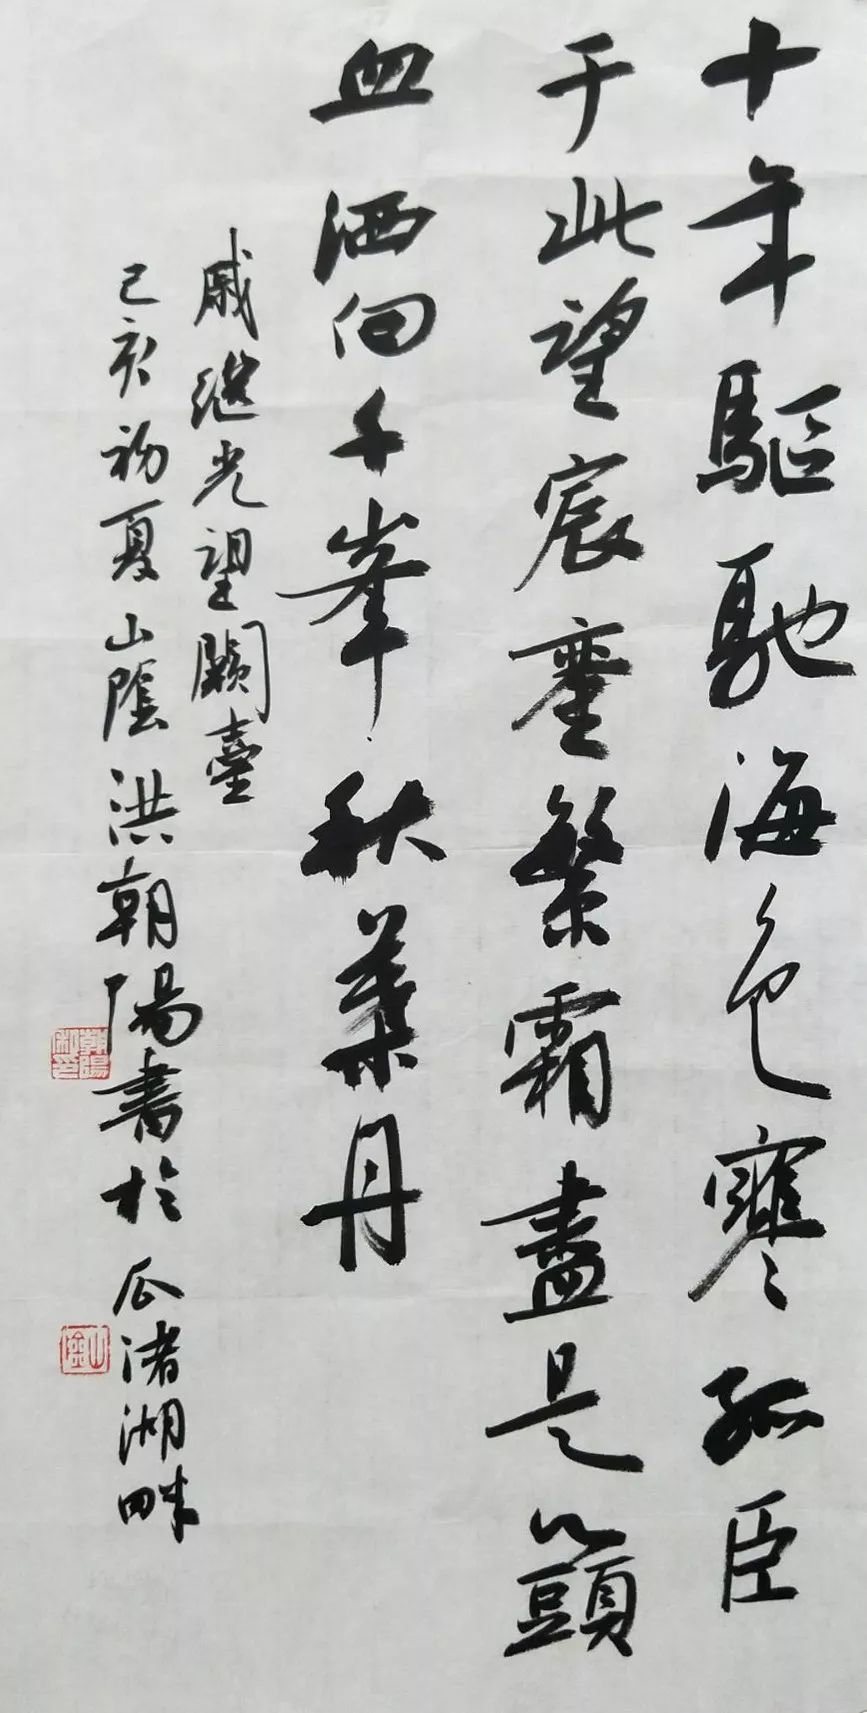 十年驅馳海色寒孤臣
于此望宸銮繁霜盡是心頭
血洒向千峯秋葉丹
戚继光望闕臺
己亥初夏山陰洪朝陽書於瓜渚湖畔
朝陽私印